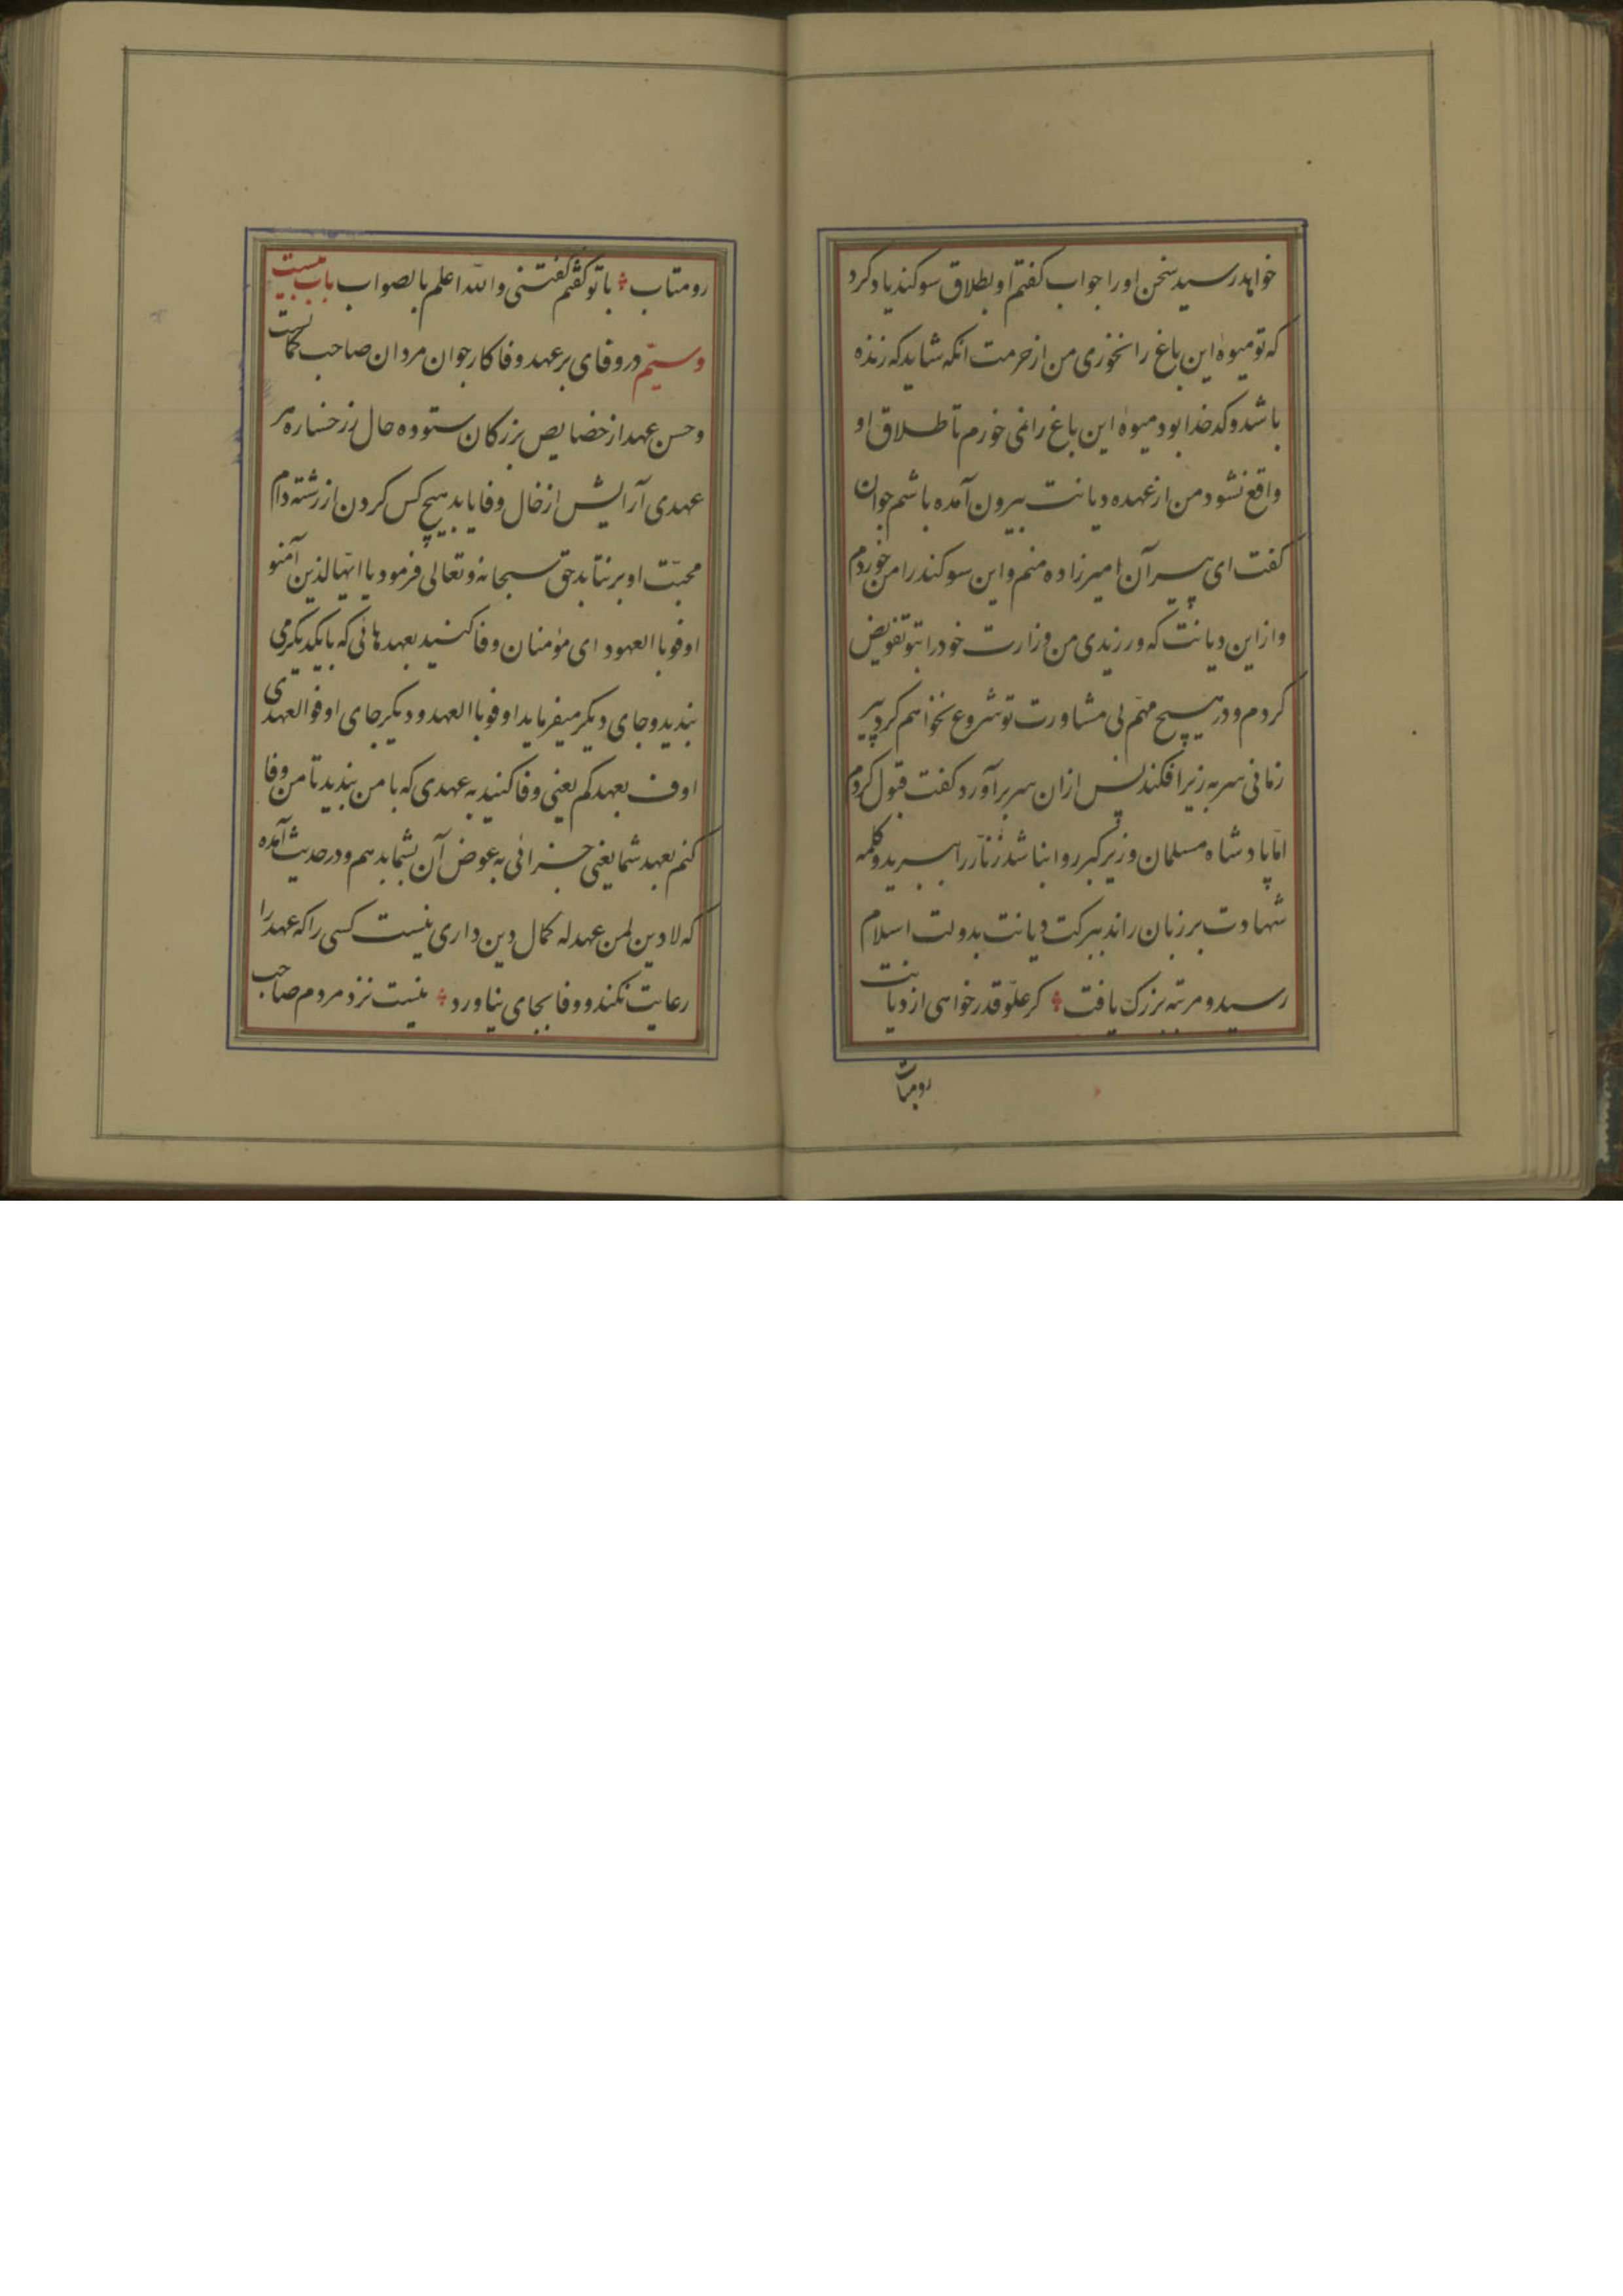 خواهد رسید سخن او را جواب کفتم او بطلاق سوکند یاد کرد
که تو میوهٔ این باغ را نخوری من از حرمت انکه شاید که زنده
باشد و کدخدا بود میوهٔ این باغ را نمی خورم تا طلاق او
واقع نشود من از عهده دیانت بیرون آمده باشم جوان
کفت ای پیر آن امیرزاده منم و این سوکند را من خوردم
و از این دیانت که ورزیدی من وزارت خود را بتو تفویض
کردم و در هیچ مهم بی مشاورت تو شروع نخواهم کرد پیر
زمانی سر به زیر افکند پس از ان سر برآورد کفت قبول کردم
اما پادشاه مسلمان و زیر کبر روا نباشد زنار را ببرید و کلمه
شهادت بر زبان راند ببرکت دیانت بدولت اسلام
رسید و مرتبه بزرک یافت کر علو قدر خواهی از دیانت
رومتاب
رومتاب با تو کفتم کفتنی والله اعلم بالصواب باب بیست
و سیّم در وفای بر عهد وفا کار جوان مردان صاحب کمالست
و حسن عهد از خصایص بزرکان ستوده حال از رخساره هر
عهدی آرایش از خال وفا یابد هیچ کس کردن از رشته دام
محبّت او برنتابد حق سبحانه و تعالی فرمود یا ایّها الذین آمنو
اوفو باالعهود ای مؤمنان وفا کنید بعهدهائی که بایکدیکر می
بندید و جای دیکر میفرماید اوفو باالعهد و دیکر جای اوفوالعهدی
اوف بعهدکم یعنی وفا کنید به عهدی که با من بندید تا من وفا
کنم بعهد شما یعنی جزائی به عوض آن بشما بدهم و در حدیث آمده
که لا دین لمن عهد له کمال دین داری نیست کسی را که عهد را
رعایت نکند و وفا بجای نیاورد نیست نزد مردم صاحب